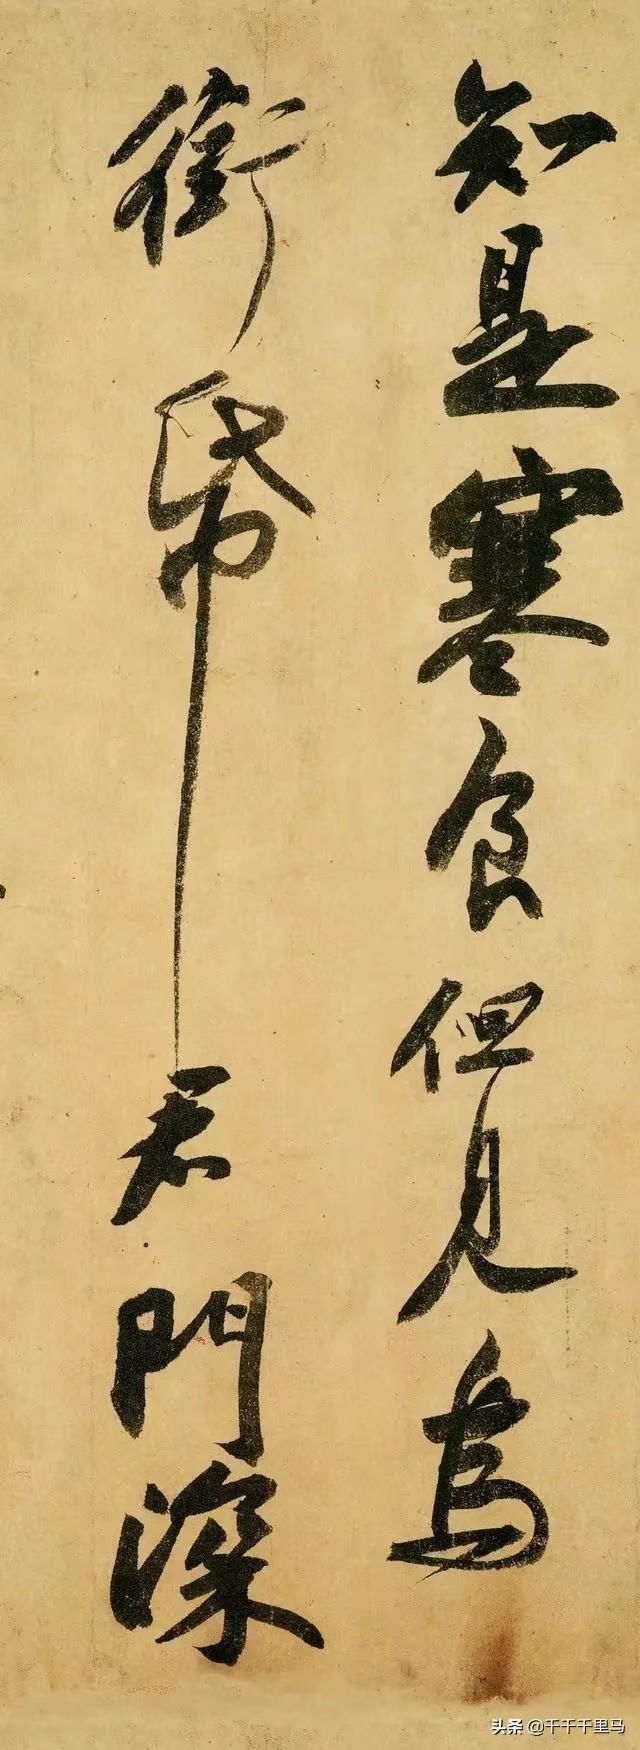 知是寒食但見烏
銜帋君門深
头条@千千千里马